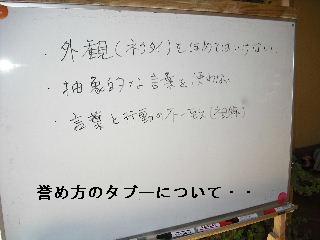 ・外観(ネクタイ)をほめてはいけない
・抽象的な言葉を使わない
・言葉と行動の
誉め方のタブーについて・・